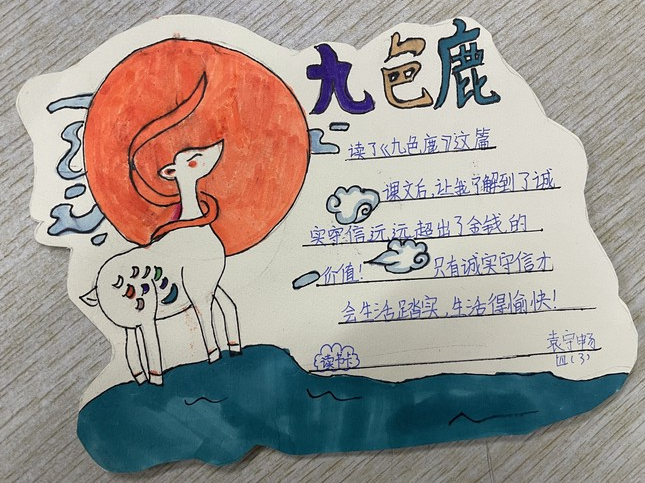 九色鹿
读了《九色鹿》这篇
课文后,让我了解到了诚
实守信远远超出了金钱的
价值!只有诚实守信才
会生活踏实,生活得愉快!
读书卡
袁宁畅
四(3)